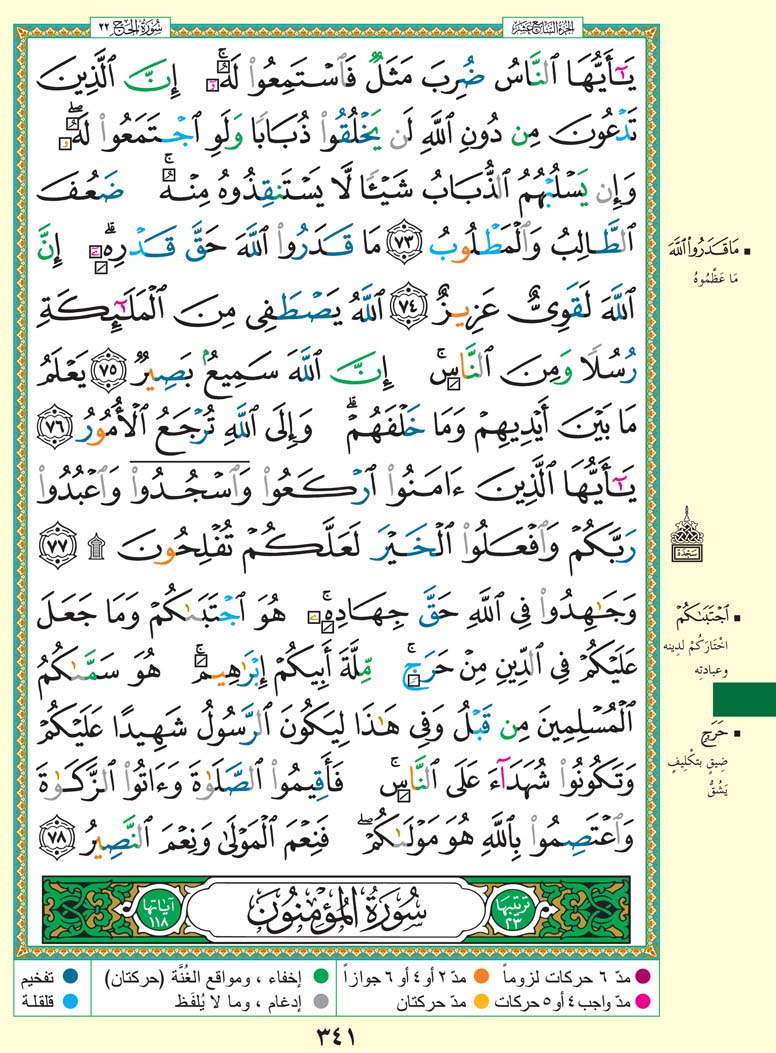 الجزء السابع عشر
سورة الحج ٢٢
يَـٰٓأَيُّهَا ٱلنَّاسُ ضُرِبَ مَثَلٌ فَٱسْتَمِعُوا۟ لَهُۥٓ ۚ إِنَّ ٱلَّذِينَ
تَدْعُونَ مِن دُونِ ٱللَّهِ لَن يَخْلُقُوا۟ ذُبَابًا وَلَوِ ٱجْتَمَعُوا۟ لَهُۥ ۖ
وَإِن يَسْلُبْهُمُ ٱلذُّبَابُ شَيْـًٔا لَّا يَسْتَنقِذُوهُ مِنْهُ ۚ ضَعُفَ
ٱلطَّالِبُ وَٱلْمَطْلُوبُ ٧٣ مَا قَدَرُوا۟ ٱللَّهَ حَقَّ قَدْرِهِۦٓ ۗ إِنَّ
ٱللَّهَ لَقَوِىٌّ عَزِيزٌ ٧٤ ٱللَّهُ يَصْطَفِى مِنَ ٱلْمَلَـٰٓئِكَةِ
رُسُلًا وَمِنَ ٱلنَّاسِ ۚ إِنَّ ٱللَّهَ سَمِيعٌۢ بَصِيرٌ ٧٥ يَعْلَمُ
مَا بَيْنَ أَيْدِيهِمْ وَمَا خَلْفَهُمْ ۗ وَإِلَى ٱللَّهِ تُرْجَعُ ٱلْأُمُورُ ٧٦
يَـٰٓأَيُّهَا ٱلَّذِينَ ءَامَنُوا۟ ٱرْكَعُوا۟ وَٱسْجُدُوا۟ وَٱعْبُدُوا۟
رَبَّكُمْ وَٱفْعَلُوا۟ ٱلْخَيْرَ لَعَلَّكُمْ تُفْلِحُونَ ۩ ٧٧
وَجَـٰهِدُوا۟ فِى ٱللَّهِ حَقَّ جِهَادِهِۦ ۚ هُوَ ٱجْتَبَىٰكُمْ وَمَا جَعَلَ
عَلَيْكُمْ فِى ٱلدِّينِ مِنْ حَرَجٍ ۚ مِّلَّةَ أَبِيكُمْ إِبْرَٰهِيمَ ۚ هُوَ سَمَّىٰكُمُ
ٱلْمُسْلِمِينَ مِن قَبْلُ وَفِى هَـٰذَا لِيَكُونَ ٱلرَّسُولُ شَهِيدًا عَلَيْكُمْ
وَتَكُونُوا۟ شُهَدَآءَ عَلَى ٱلنَّاسِ ۚ فَأَقِيمُوا۟ ٱلصَّلَوٰةَ وَءَاتُوا۟ ٱلزَّكَوٰةَ
وَٱعْتَصِمُوا۟ بِٱللَّهِ هُوَ مَوْلَىٰكُمْ ۖ فَنِعْمَ ٱلْمَوْلَىٰ وَنِعْمَ ٱلنَّصِيرُ ٧٨
ترتيبها ٢٣
سُورَةُ المُؤْمِنُونَ
آياتها ١١٨
مَا قَدَرُوا۟ ٱللَّهَ
مَا عَظَّمُوهُ
سجدة
ٱجْتَبَىٰكُمْ
اخْتَارَكُمْ لدِينه
وعبادتِه
حَرَجٍ
ضِيقٍ بتكْلِيفٍ
يَشُقُّ
مدّ ٦ حركات لزوماً
مدّ ٢ أو ٤ أو ٦ جوازاً
إخفاء ، ومواقع الغُنَّة (حركتان)
تفخيم
مدّ واجب ٤ أو ٥ حركات
مدّ حركتان
إدغام ، وما لا يُلفَظ
قلقلة
٣٤١